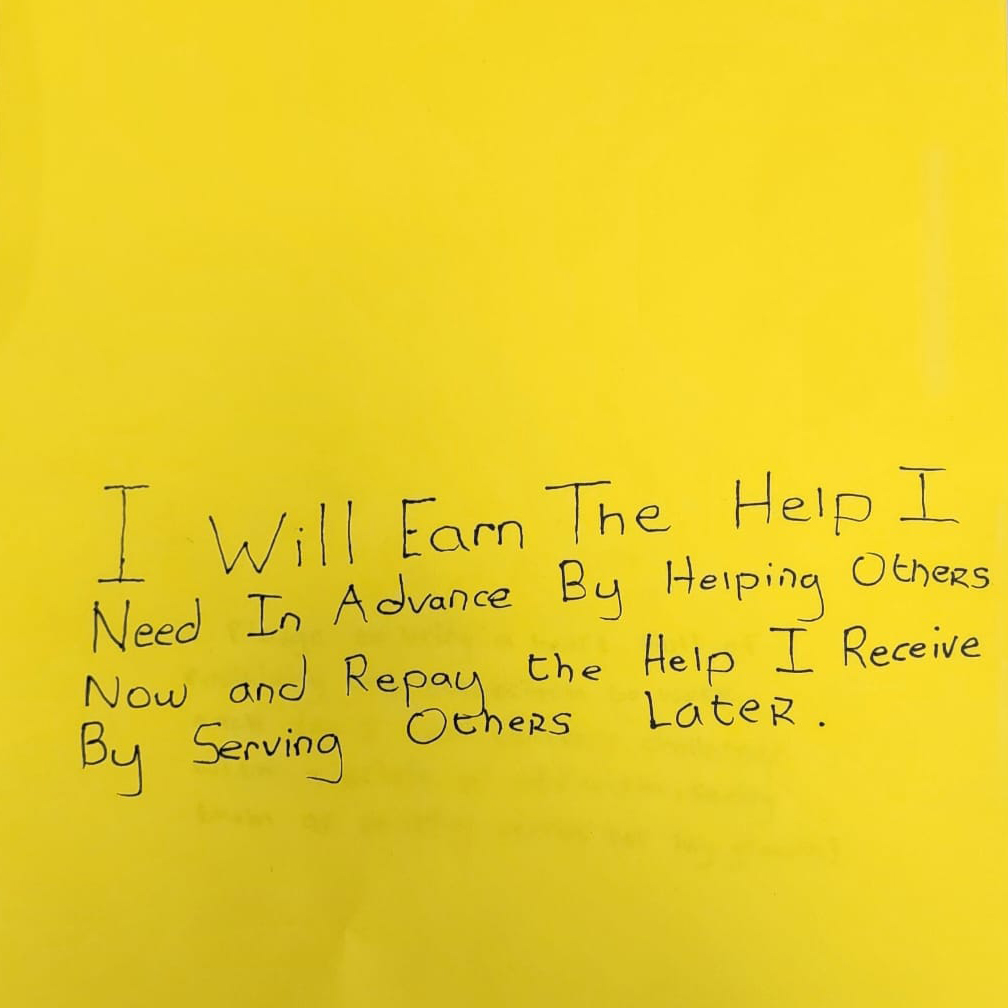 I Will Earn The Help I
Need In Advance By Helping Others
Now and Repay the Help I Receive
By Serving Others Later.